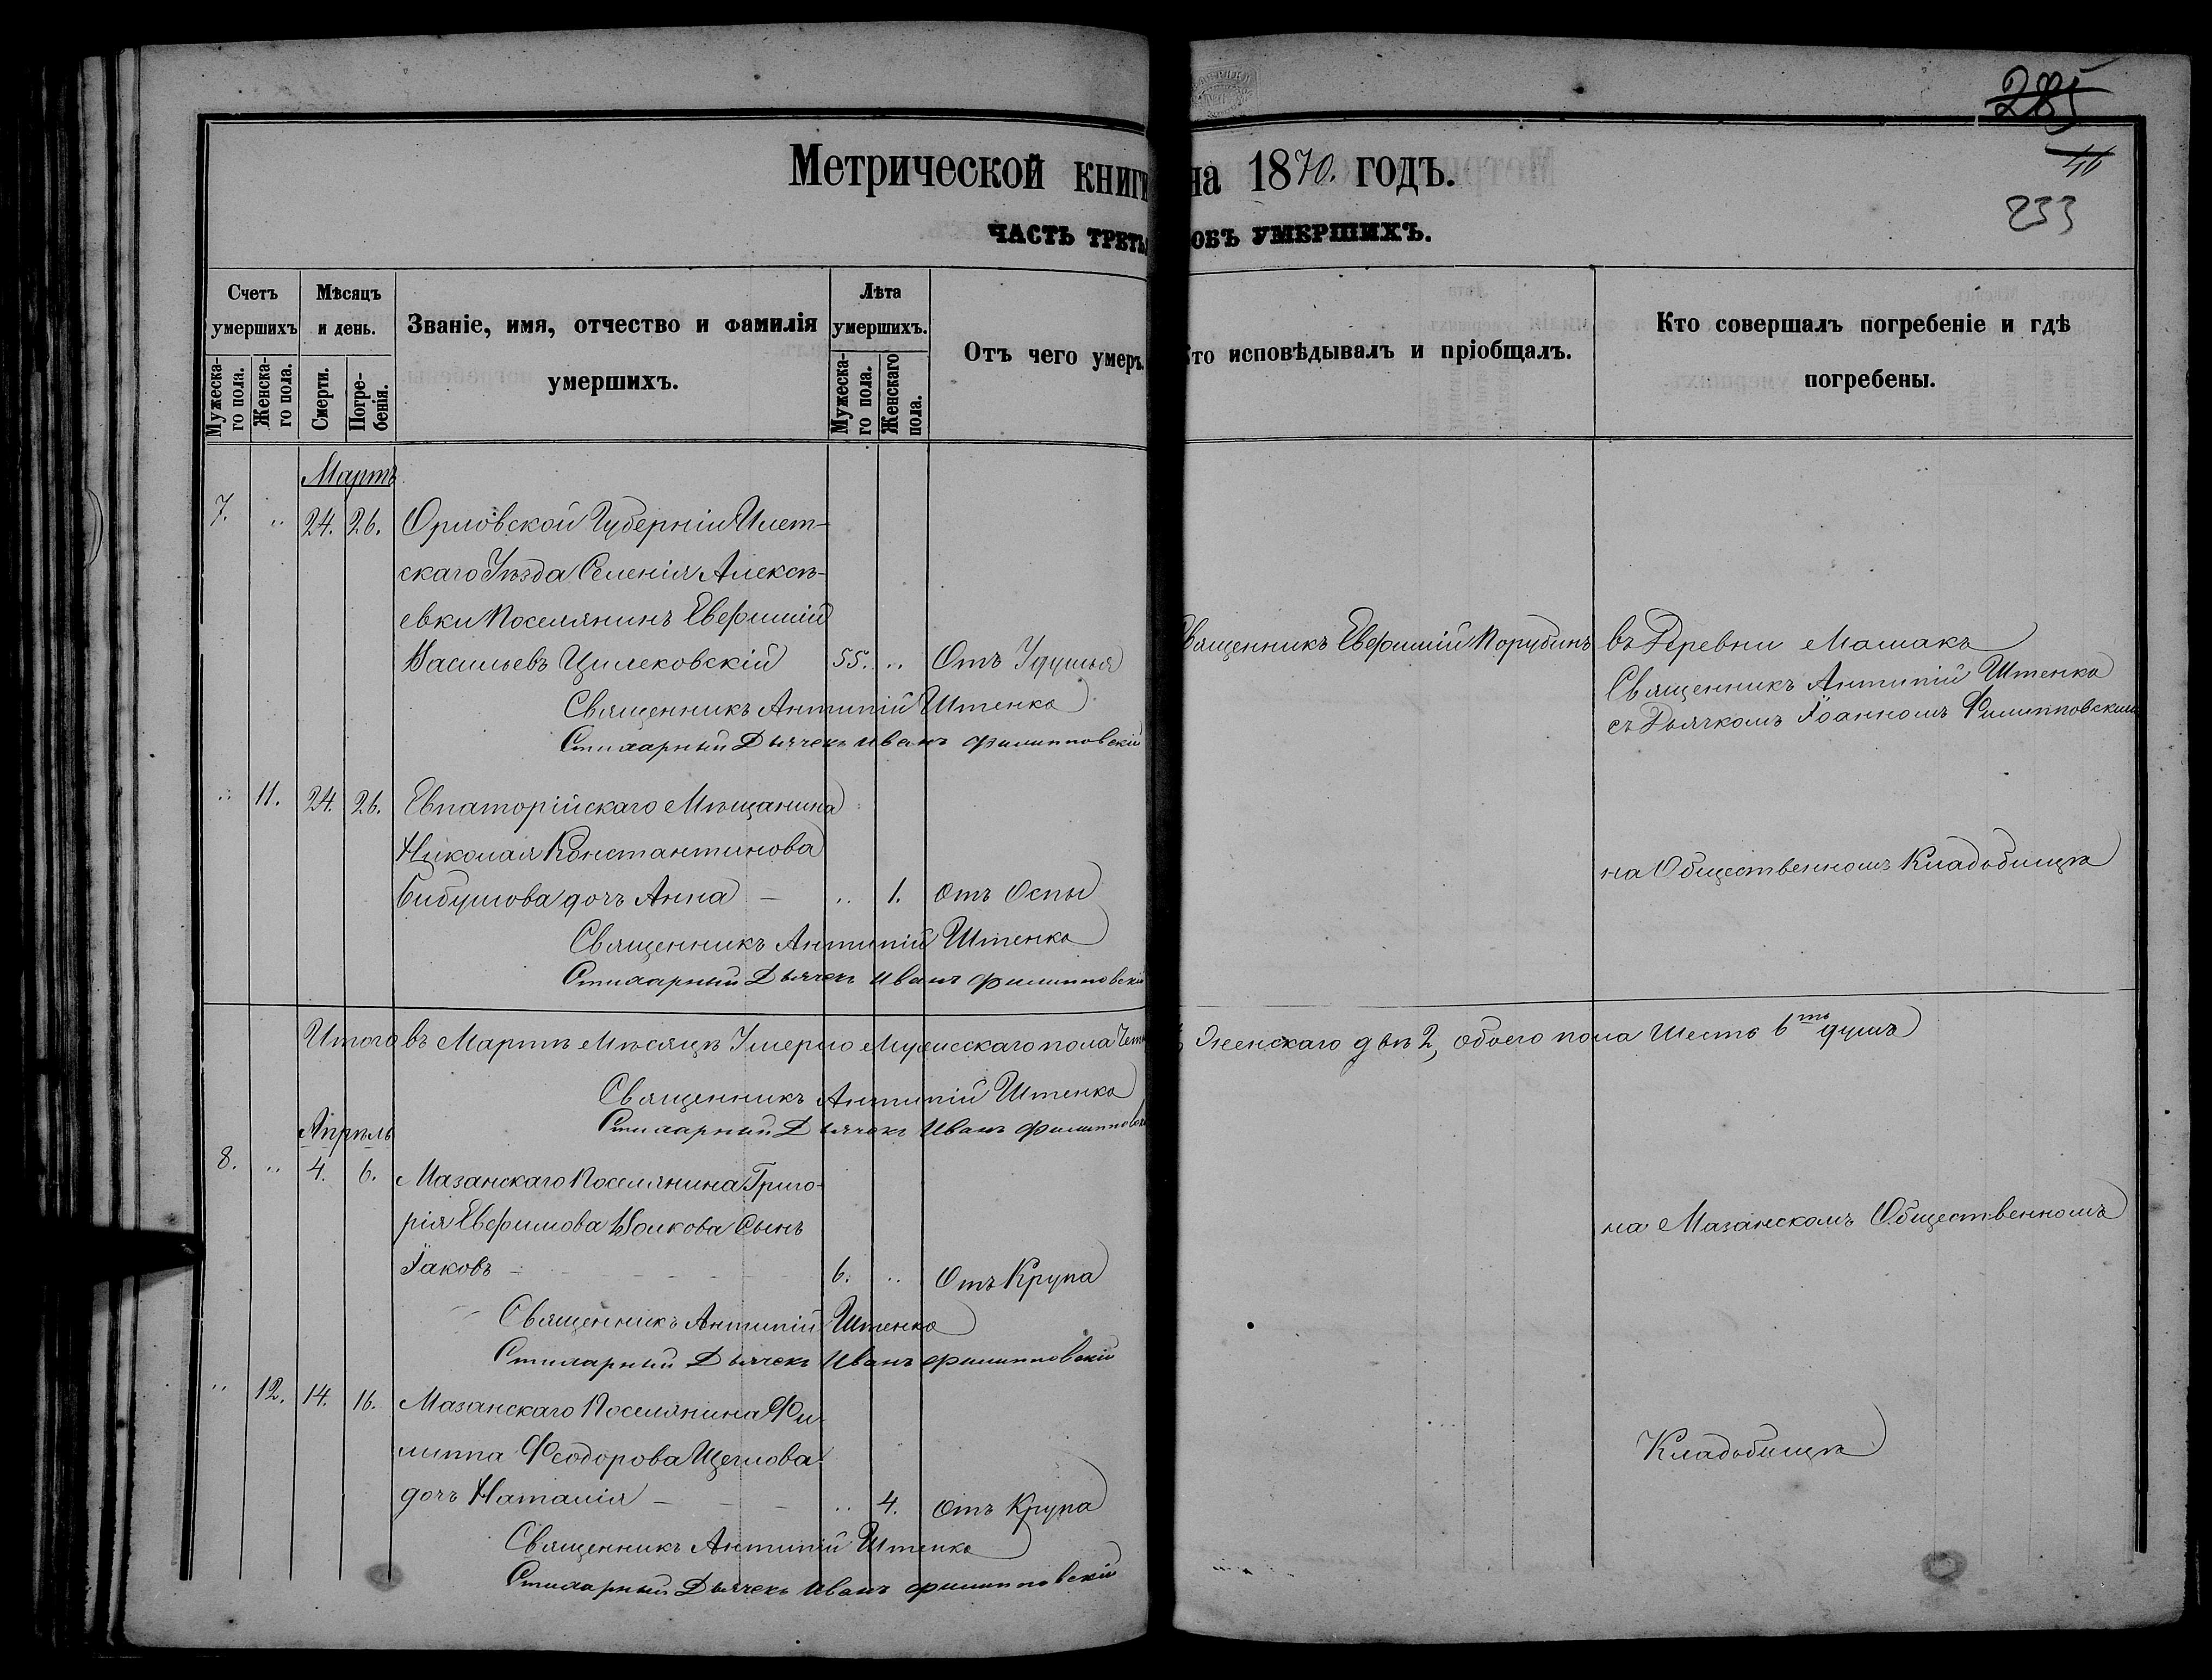 285
46
233
Метрической книги на 1870. годъ.
ЧАСТЬ ТРЕТЬЯ ОБЪ УМЕРШИХЪ.
Счетъ умершихъ
Мужеска-го пола.
Женска-го пола.
Мѣсяцъ и день.
Смерти.
Погре-бенія.
Званіе, имя, отчество и фамилія умершихъ.
Лѣта умершихъ.
Мужеска-го пола.
Женскаго пола.
Отъ чего умеръ.
Кто исповѣдывалъ и пріобщалъ.
Кто совершалъ погребеніе и гдѣ погребены.
Мартъ
7. " 24. 26. Орловской Губерніи
скаго Уѣзда Селенія Алексѣ-
евки Поселянинъ Евѳимій
Васильевъ Цилековскій 55. " Отъ Удушья
Священникъ Антипій Штенко
Стихарный Дьячекъ Иванъ Филипповскій
Священникъ Евѳимій Порубинъ
въ Деревни Машакъ
Священникъ Антипій Штенко
съ Дьячкомъ Іоанномъ Филипповскимъ
" 11. 24. 26. Евпаторійскаго Мѣщанина
Николая Константинова
Бибушова дочь Анна — " 1. Отъ Оспы
Священникъ Антипій Штенко
Стихарный Дьячекъ Иванъ Филипповскій
на Общественномъ Кладбищѣ
Итого въ Мартѣ Мѣсяцѣ Умерло Мужескаго пола Чет Женскаго двѣ 2, обоего пола Шесть 6ть душъ
Священникъ Антипій Штенко
Стихарный Дьячекъ Иванъ Филипповск
Апрѣль
8. " 4. 6. Мазанскаго Поселянина Григо-
рія Евѳимова Волкова Сынъ
Іаковъ — 6. " Отъ Крупа
Священникъ Антипій Штенко
Стихарный Дьячекъ Иванъ Филипповскій
на Мазанскомъ Общественномъ
" 12. 14. 16. Мазанскаго Поселянина Фи-
липпа Ѳеодорова Щеглова
дочь Наталія — " 4. Отъ Крупа
Священникъ Антипій Штенко
Стихарный Дьячекъ Иванъ Филипповскій
Кладбищѣ